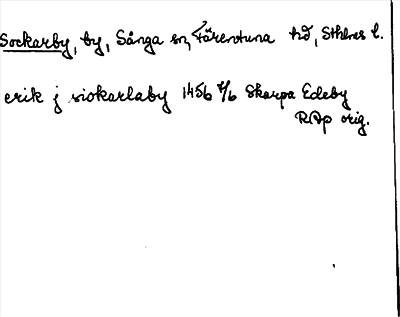 Sockarby, by, Sånga sn, Färentuna hd, Sthlms l.
erik j siokarlaby 1456 4/6 Skarpa Edeby
RAp orig.